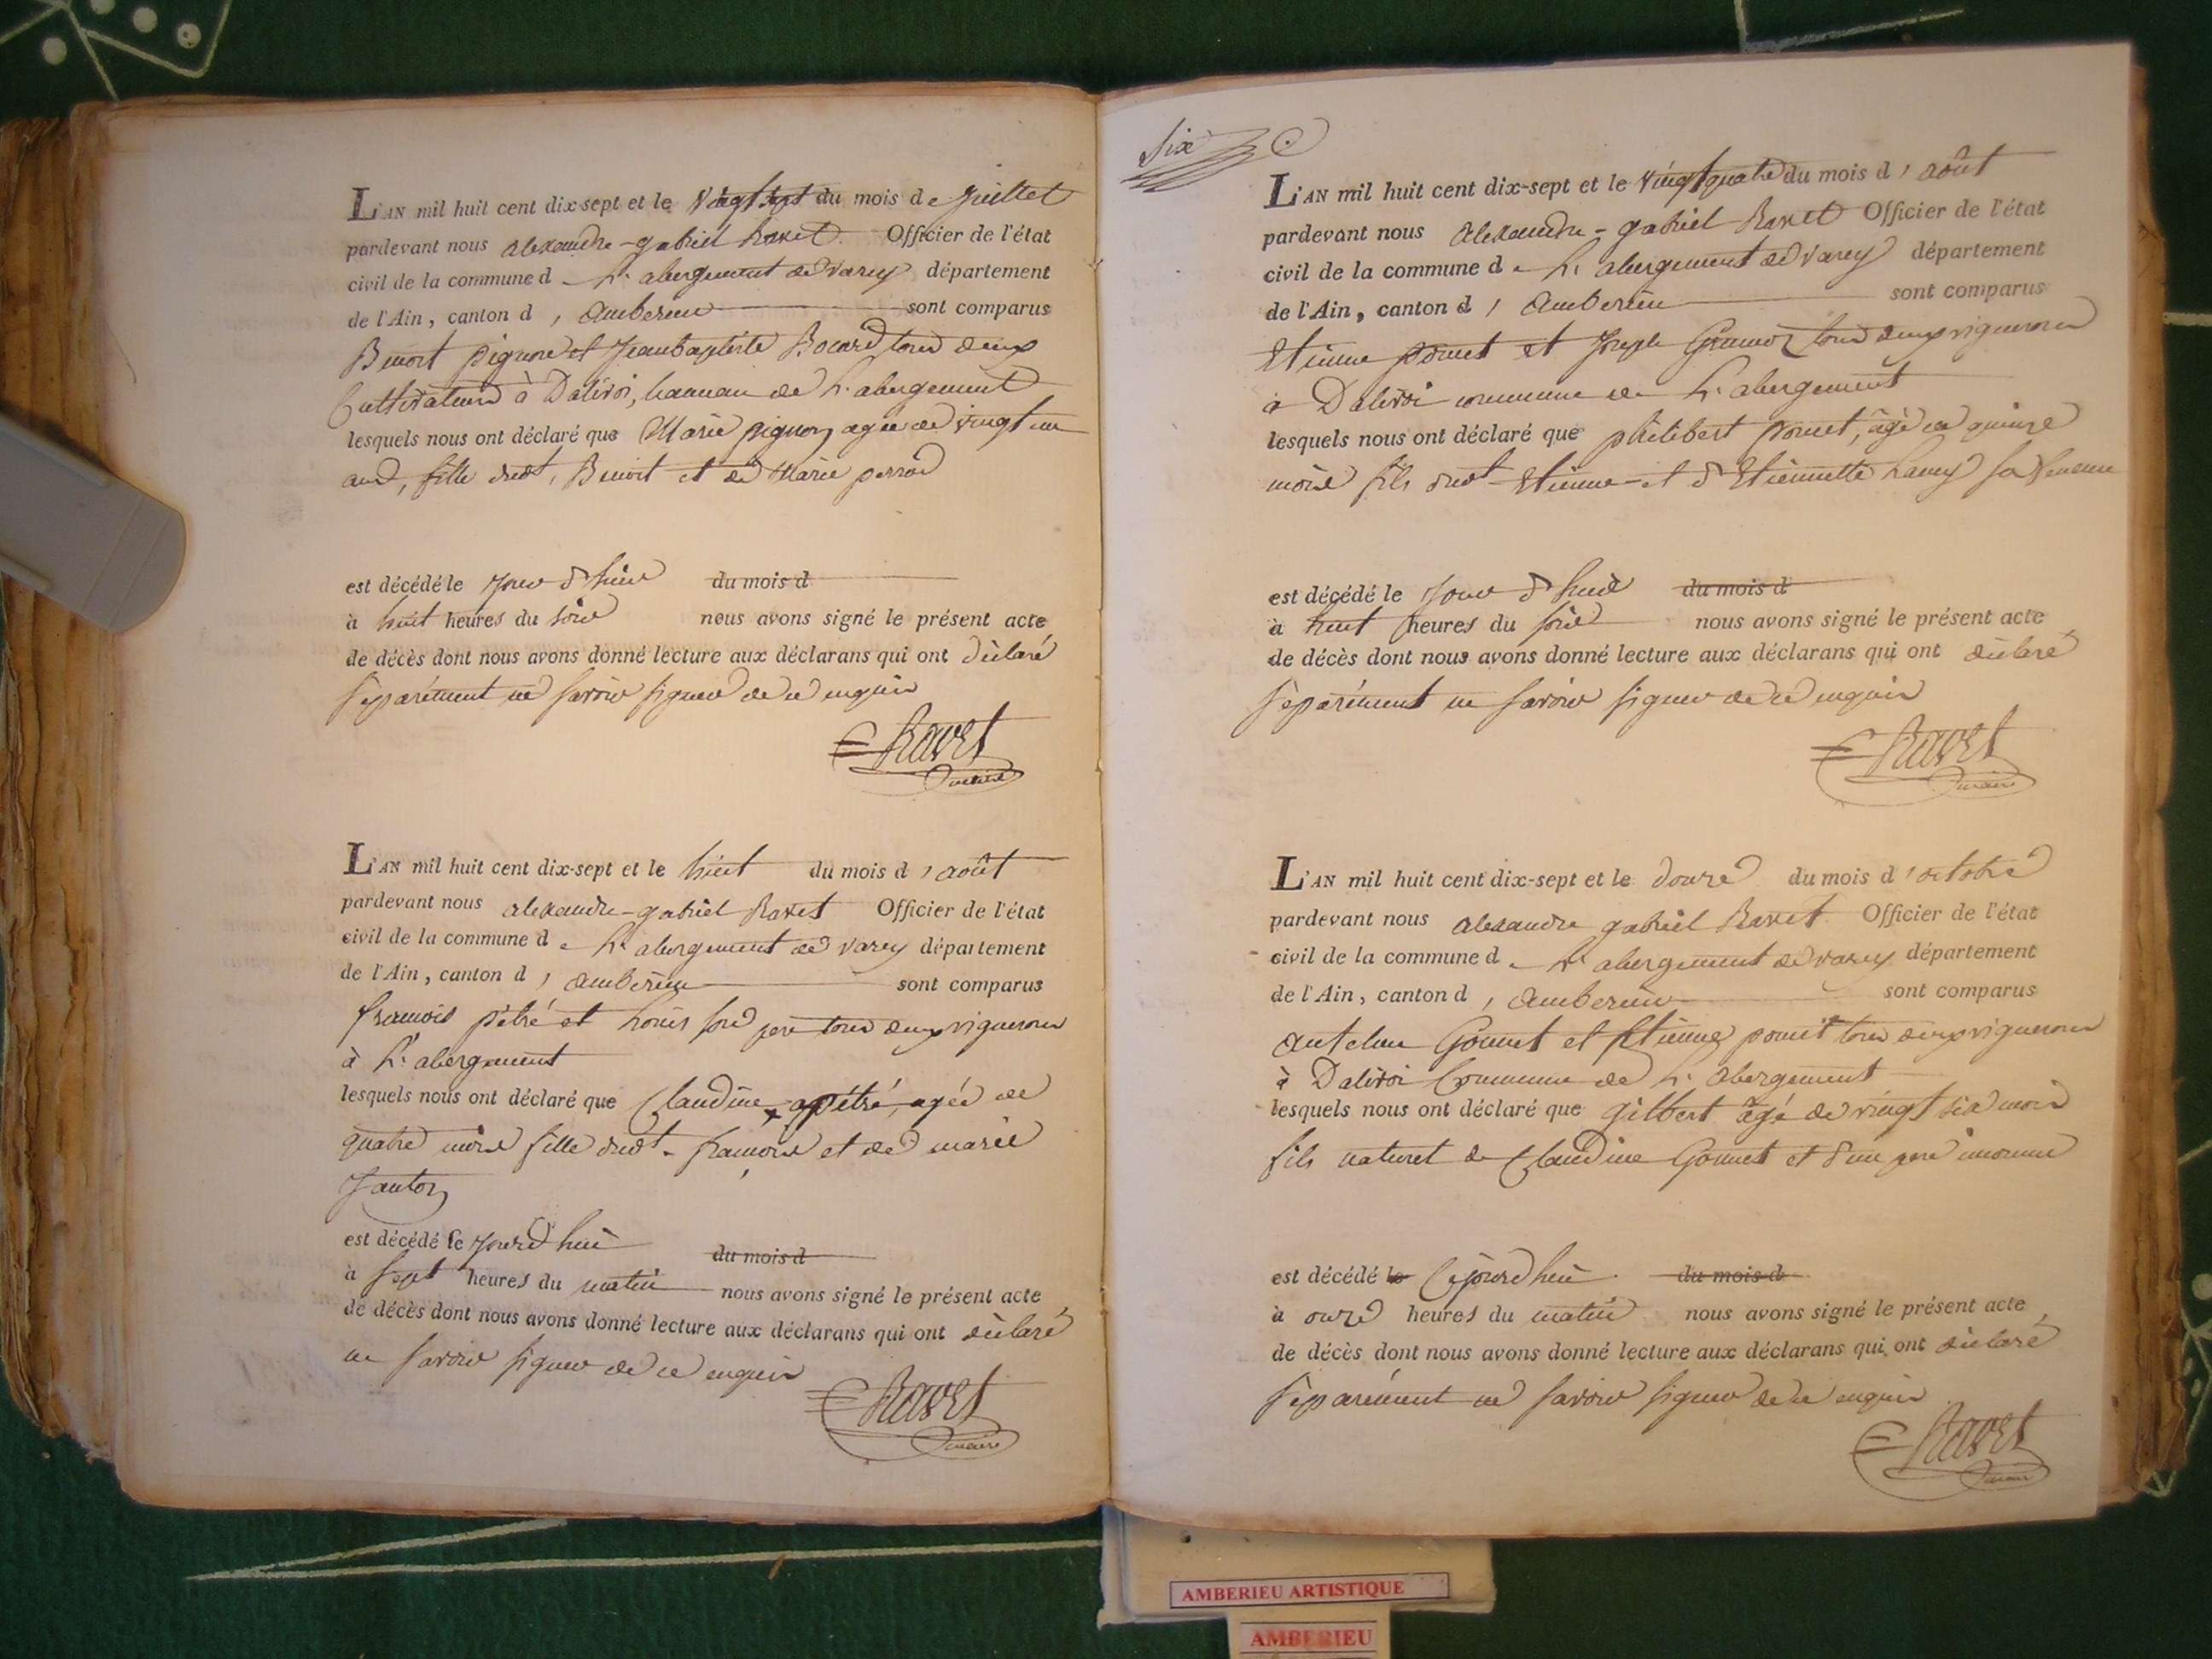 L'AN mil huit cent dix-sept et le vingt sept du mois de juillet
pardevant nous alexandre-gabriel Ravet Officier de l'état
civil de la commune de L'abergement de varey département
de l'Ain, canton d'Amberieu sont comparus
Benoit pignon et Jean baptiste Bocard tous deux
Cultivateurs à Dalivoi, hameau de L'abergement
lesquels nous ont déclaré que Marie pignon agée de vingt un
ans, fille dudt Benoit et de Marie perrod
est décédé le jour d'huis du mois d
à huit heures du soir nous avons signé le présent acte
de décès dont nous avons donné lecture aux déclarans qui ont déclaré
séparément ne savoir signer de ce enquis
Ravet
maire
L'AN mil huit cent dix-sept et le huit du mois d'août
pardevant nous alexandre-gabriel Ravet Officier de l'état
civil de la commune de L'abergement de varey département
de l'Ain, canton d'Amberieu sont comparus
françois pétré et Louis père tous deux vignerons
à L'abergement
lesquels nous ont déclaré que Claudine pétré, agée de
quatre mois fille dudt françois et de marie
Janton
est décédé le jourd'hui du mois d
à sept heures du matin nous avons signé le présent acte
de décès dont nous avons donné lecture aux déclarans qui ont déclaré
ne savoir signer de ce enquis
Ravet
maire
six
L'AN mil huit cent dix-sept et le vingt quatre du mois d'août
pardevant nous alexandre-gabriel Ravet Officier de l'état
civil de la commune de L'abergement de varey département
de l'Ain, canton d'Amberieu sont comparus
Etienne pomet et Joseph tous deux vignerons
à Dalivoi commune de L'abergement
lesquels nous ont déclaré que philibert pomet, âgé de quinze
mois fils dudt Etienne et d'Etiennette Lamy sa femme
est décédé le jour d'huis du mois d
à huit heures du soir nous avons signé le présent acte
de décès dont nous avons donné lecture aux déclarans qui ont déclaré
séparément ne savoir signer de ce enquis
Ravet
maire
L'AN mil huit cent dix-sept et le douze du mois d'octobre
pardevant nous alexandre gabriel Ravet Officier de l'état
civil de la commune de L'abergement de varey département
de l'Ain, canton d'Amberieu sont comparus
Antelme Gonnet et Etienne pomet tous deux vignerons
à Dalivoi Commune de L'abergement
lesquels nous ont déclaré que gilbert âgé de vingt six mois
fils naturel de Claudine Gonnet et d'un pere inconnu
est décédé le Cejourd'hui du mois d
à onze heures du matin nous avons signé le présent acte
de décès dont nous avons donné lecture aux déclarans qui ont déclaré
séparément ne savoir signer de ce enquis
Ravet
maire
AMBERIEU ARTISTIQUE
AMBERIEU